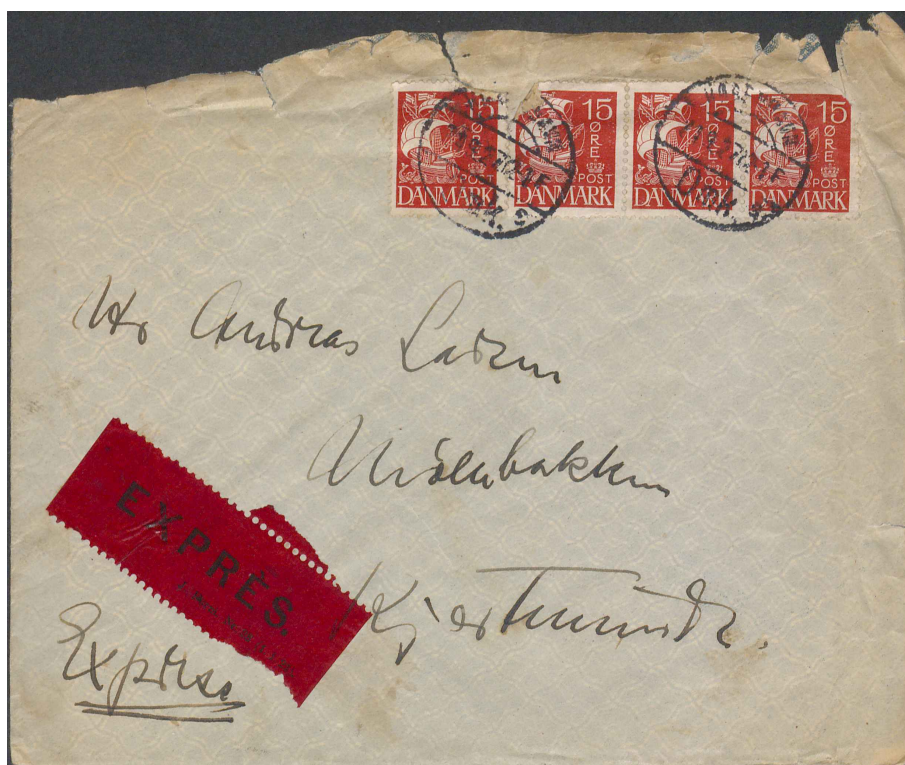 15 ØRE POST DANMARK
15 ØRE POST DANMARK
15 ØRE POST DANMARK
15 ØRE POST DANMARK
Hr Andreas Larsen
Möllebakken
Kjerteminde.
EXPRÉS.
Express